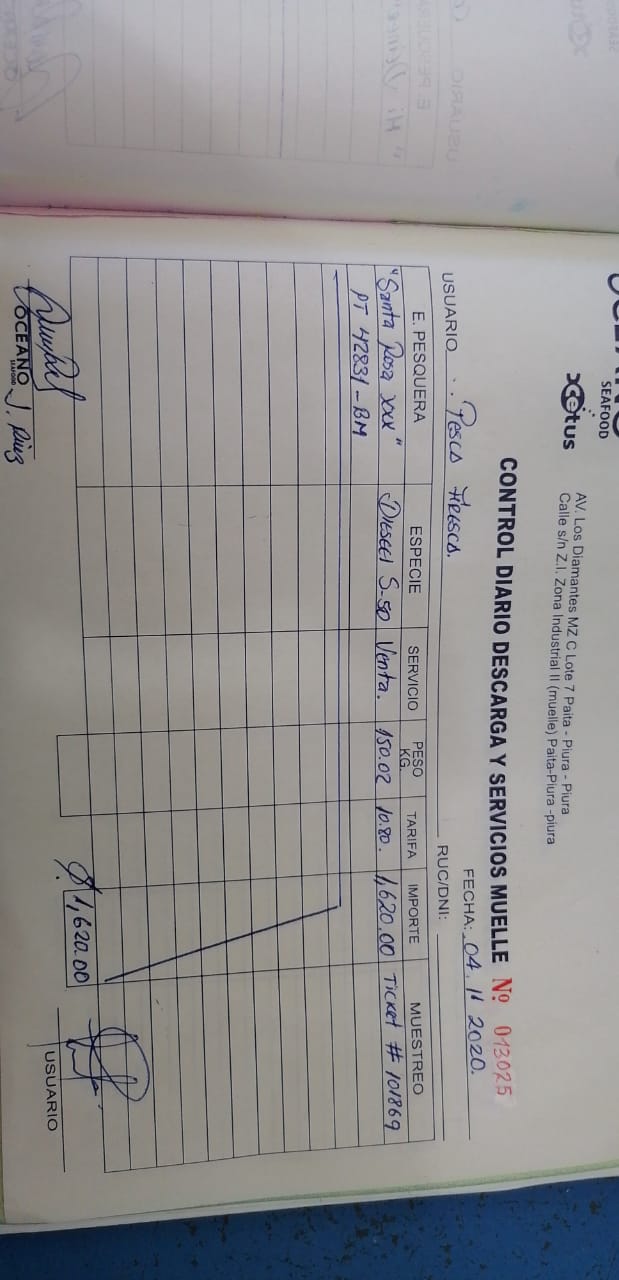 SEAFOOD
xcetus
AV. Los Diamantes MZ C Lote 7 Paita - Piura - Piura
Calle s/n Z.I. Zona Industrial II (muelle) Paita-Piura -piura
CONTROL DIARIO DESCARGA Y SERVICIOS MUELLE Nº 013025
FECHA: 04. 11 2020.
USUARIO Pesca Fresca. RUC/DNI:
E. PESQUERA ESPECIE SERVICIO PESO KG. TARIFA IMPORTE MUESTREO
"Santa Rosa XXX" Diesel S-50 Venta. 150.02 10.80. 1,620.00 Ticket # 101869
PT 42831-BM
$ 1,620.00
OCEANO J. Ruiz
SEAFOOD
USUARIO